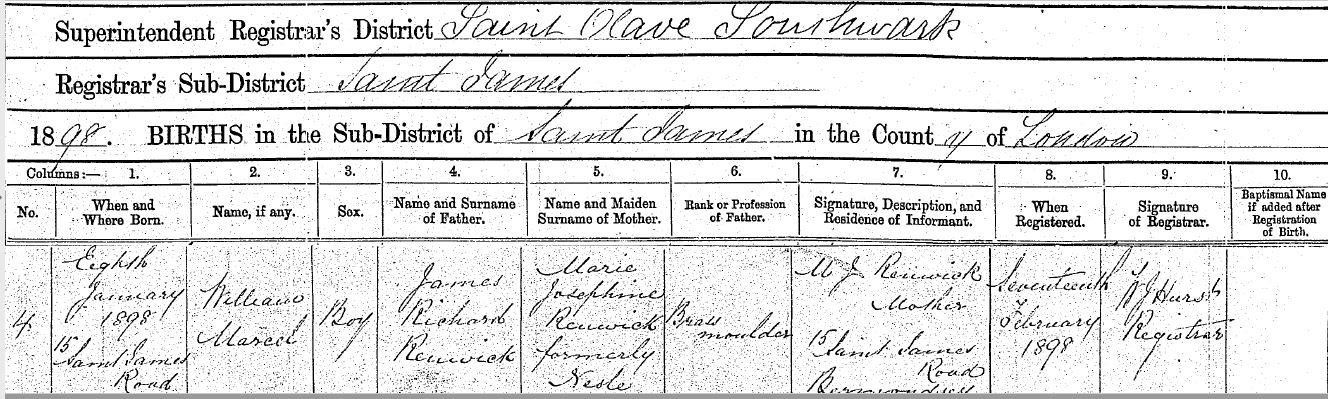 Superintendent Registrar's District Saint Olave Southwark
Registrar's Sub-District Saint James
1898. BIRTHS in the Sub-District of Saint James in the County of London
Columns:— 1. 2. 3. 4. 5. 6. 7. 8. 9. 10.
No.
When and
Where Born.
Name, if any.
Sex.
Name and Surname
of Father.
Name and Maiden
Surname of Mother.
Rank or Profession
of Father.
Signature, Description, and
Residence of Informant.
When
Registered.
Signature
of Registrar.
Baptismal Name
if added after
Registration
of Birth.
4
Eighth
January
1898
15
Saint James
Road
William
Marcel
Boy
James
Richard
Renwick
Marie
Josephine
Renwick
formerly
Nesle
Brass
moulder
M J Renwick
Mother
15
Saint James
Road
Bermondsey
Seventeenth
February
1898
W J Hurst
Registrar